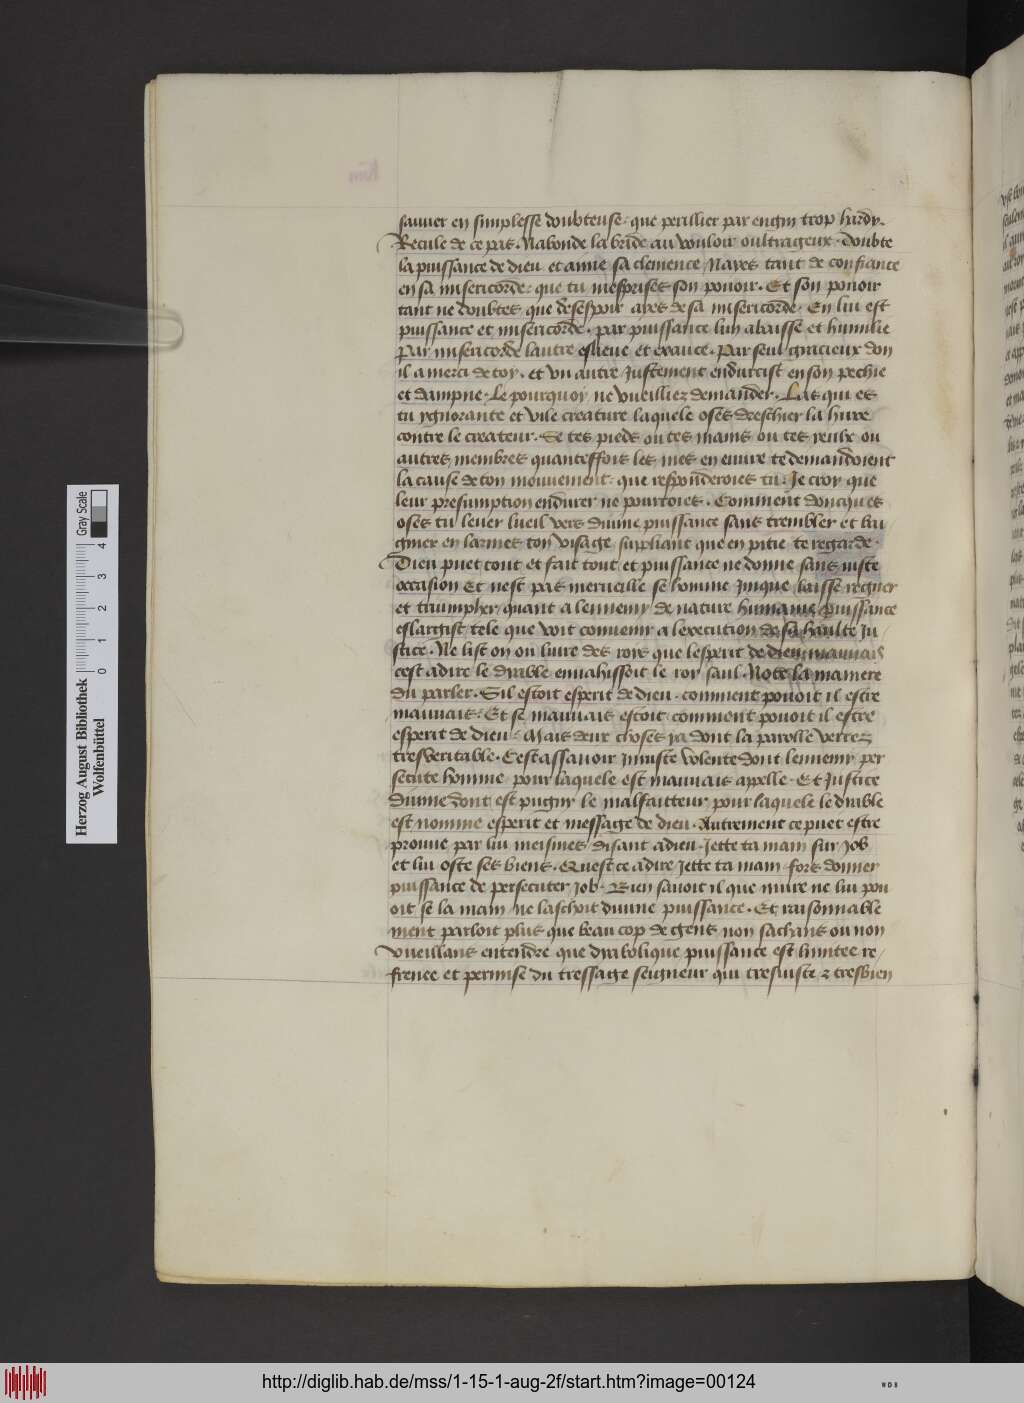 sauver en simplesse doubteuse · que perillier par engin trop hardy ·
Recule de ce pas · Nabonde la bride au vouloir oultrageux · Doubte
la puissance de dieu et aime sa clemence Nayes tant de confiance
en sa misericorde · que tu mesprises son pouoir · Et son pouoir
tant ne doubtes que desespoir ayes de sa misericorde · En lui est
puissance et misericorde · par puissance lun abaisse et humilie
par misericorde lautre eslieue et exauce · Par seul gracieux don
il a merci de toy · et vn autre Justement endurcist en son pechie
et dampne · Le pourquoy ne vueilliez demander · Las qui es
tu ygnorante et vile creature laquele oses dreschier la hure
contre le createur · Se tes pieds ou tes mains ou tes yeulx ou
autres membres quanteffois les mes en euure te demandoient
la cause de ton mouuement · que responderoies tu · Je croy que
leur presumption endurer ne pourroies · Comment doncques
oses tu leuer lueil vers diuine puissance sans trembler et bai
gnier en larmes ton visage suppliant que en pitie te regarde ·
Dieu puet tout et fait tout et puissance ne donne sans iuste
occasion Et nest pas merueille se homme inique laisse regner
et triumpher / quant a lennemy de nature humaine puissance
eslargist tele que voit conuenir a lexecution de sa haulte Ju /
stice · Ne list on ou liure des rois que lesperit de dieu mauuais
cest a dire le dyable enuahissoit le roy saul · Note la maniere
du parler · Sil estoit esperit de dieu · comment pouoit il estre
mauuais · Et se mauuais estoit comment pouoit il estre
esperit de dieu · Mais deux choses ja dont la parolle verrez
tresueritable · Cest assauoir iniuste volente dont lennemy per
secute homme / pour laquele est mauuais apelle · Et Justice
diuine dont est pugny le malfaitteur pour laquele le dyable
est nomme esperit et message de dieu · Autrement ce puet estre
prouue par lui meismes disant a dieu · Jette ta main sur Job
et lui oste ses biens · Quest ce a dire Jette ta main · fors donner
puissance de persecuter Job · Bien sauoit il que nuire ne lui pou
oit se la main ne laschoit diuine puissance · Et raisonnable
ment parloit plus que beaucop de gens non sachans ou non
vueillans entendre que dyabolique puissance est limitee re /
frenee et permise du tressage seigneur qui tresiuste z tresbien
Herzog August Bibliothek
Wolfenbüttel
0 1 2 3 4
Gray Scale
http://diglib.hab.de/mss/1-15-1-aug-2f/start.htm?image=00124
WDB